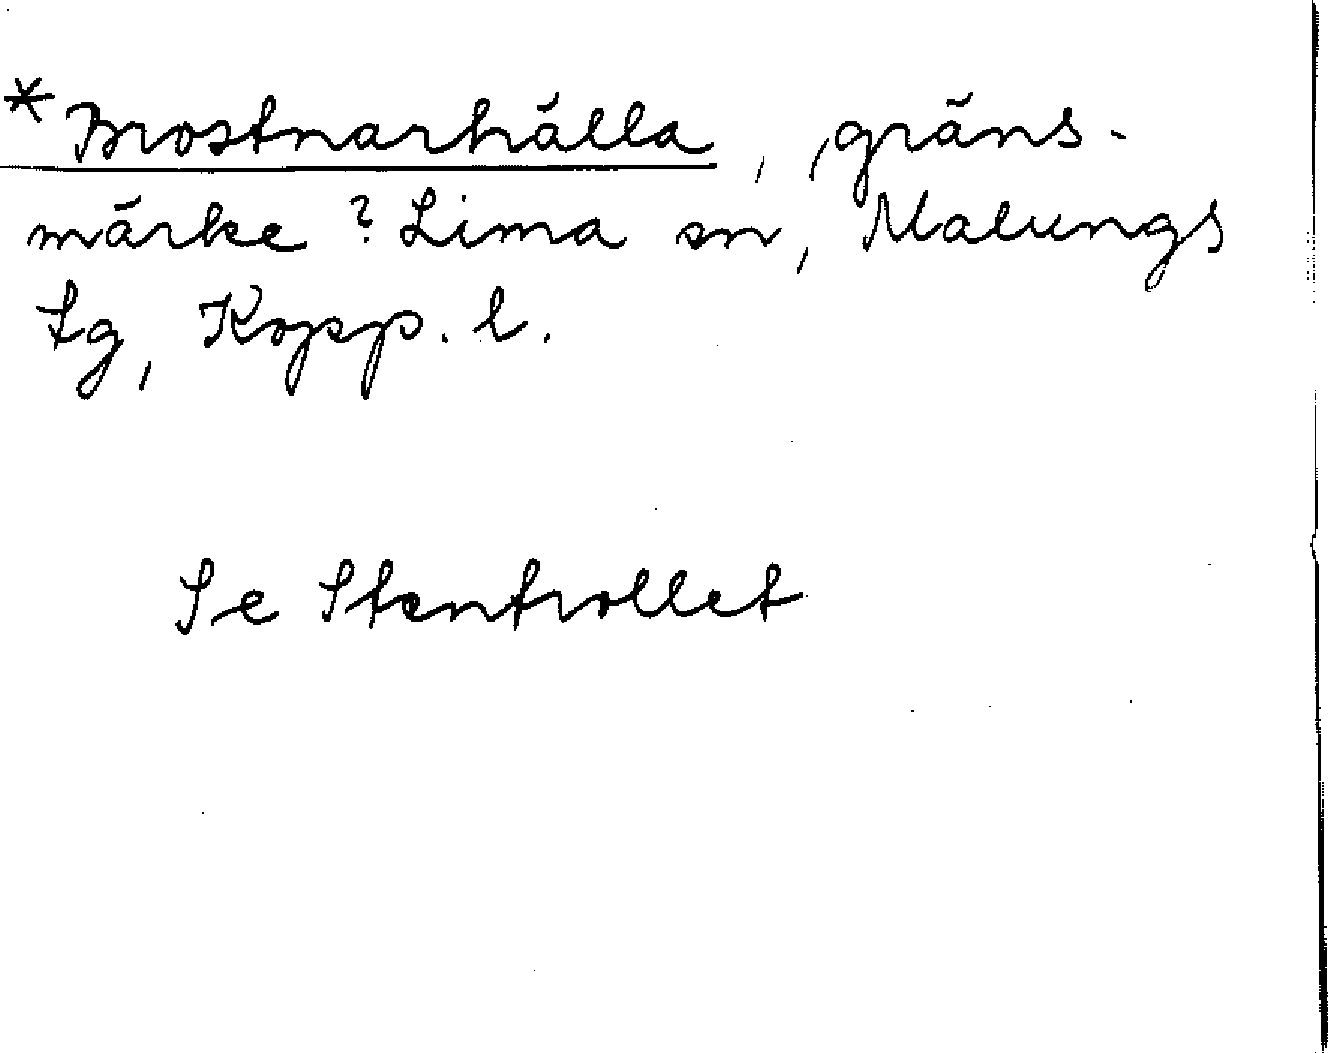 *Brostnarhälla, gräns-
märke? Lima sn, Malungs
tg, Kopp. l.
Se Stentrollet